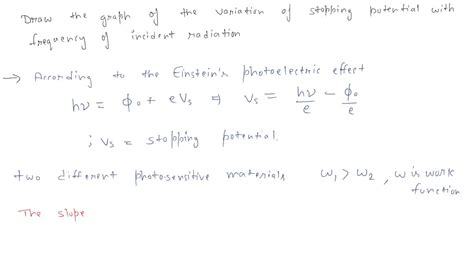 Draw the graph of the variation of stopping potential with
frequency of incident radiation
→ According to the Einstein's photoelectric effect
hν = ϕ₀ + eVs ⇒ Vs = hν/e - ϕ₀/e
; Vs = stopping potential.
two different photosensitive materials ω₁ > ω₂ , ω is work
function
The slope